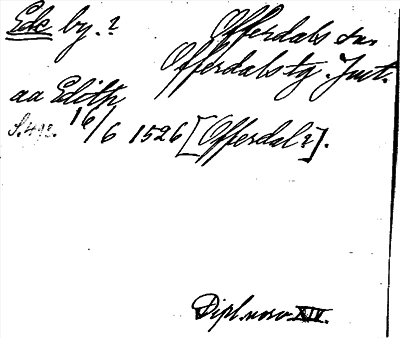 Ede by. ? Offerdals sn.
Offerdals tg. Jmtl.
aa Edith
S. 492. 16/6 1526 [Offerdal?].
Dipl. norv. XIV.